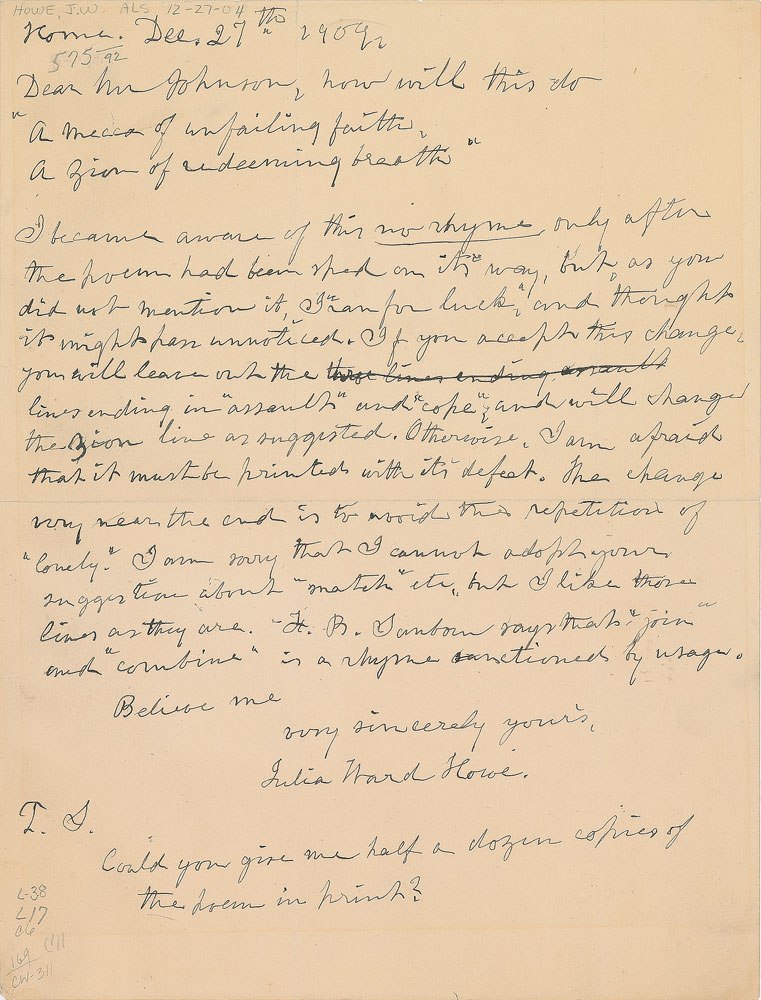 HOWE, J.W. ALS 12-27-04
Dec. 27th 1909,
575/92
Dear Mr Johnson, how will this do
"A mecca of unfailing faith,
A Zion of redeeming breath"
I became aware of this no rhyme, only after
the poem had been sped on its way, but, as you
did not mention it, I "ran for luck," and thought
it might pass unnoticed. If you accept this change,
you will leave out the three lines ending assault
lines ending in "assault" and "cope", and will change
the Zion line as suggested. Otherwise, I am afraid
that it must be printed with its defect. The change
very near the end is to avoid the repetition of
"lonely." I am sorry that I cannot adopt your
suggestion about "match" etc, but I like those
lines as they are. F. B. Sanborn says that "join"
and "combine" is a rhyme sanctioned by usage.
Believe me
very sincerely yours,
Julia Ward Howe.
P. S.
Could you give me half a dozen copies of
the poem in print?
L-38
L17
C6
C11
169
CW-311